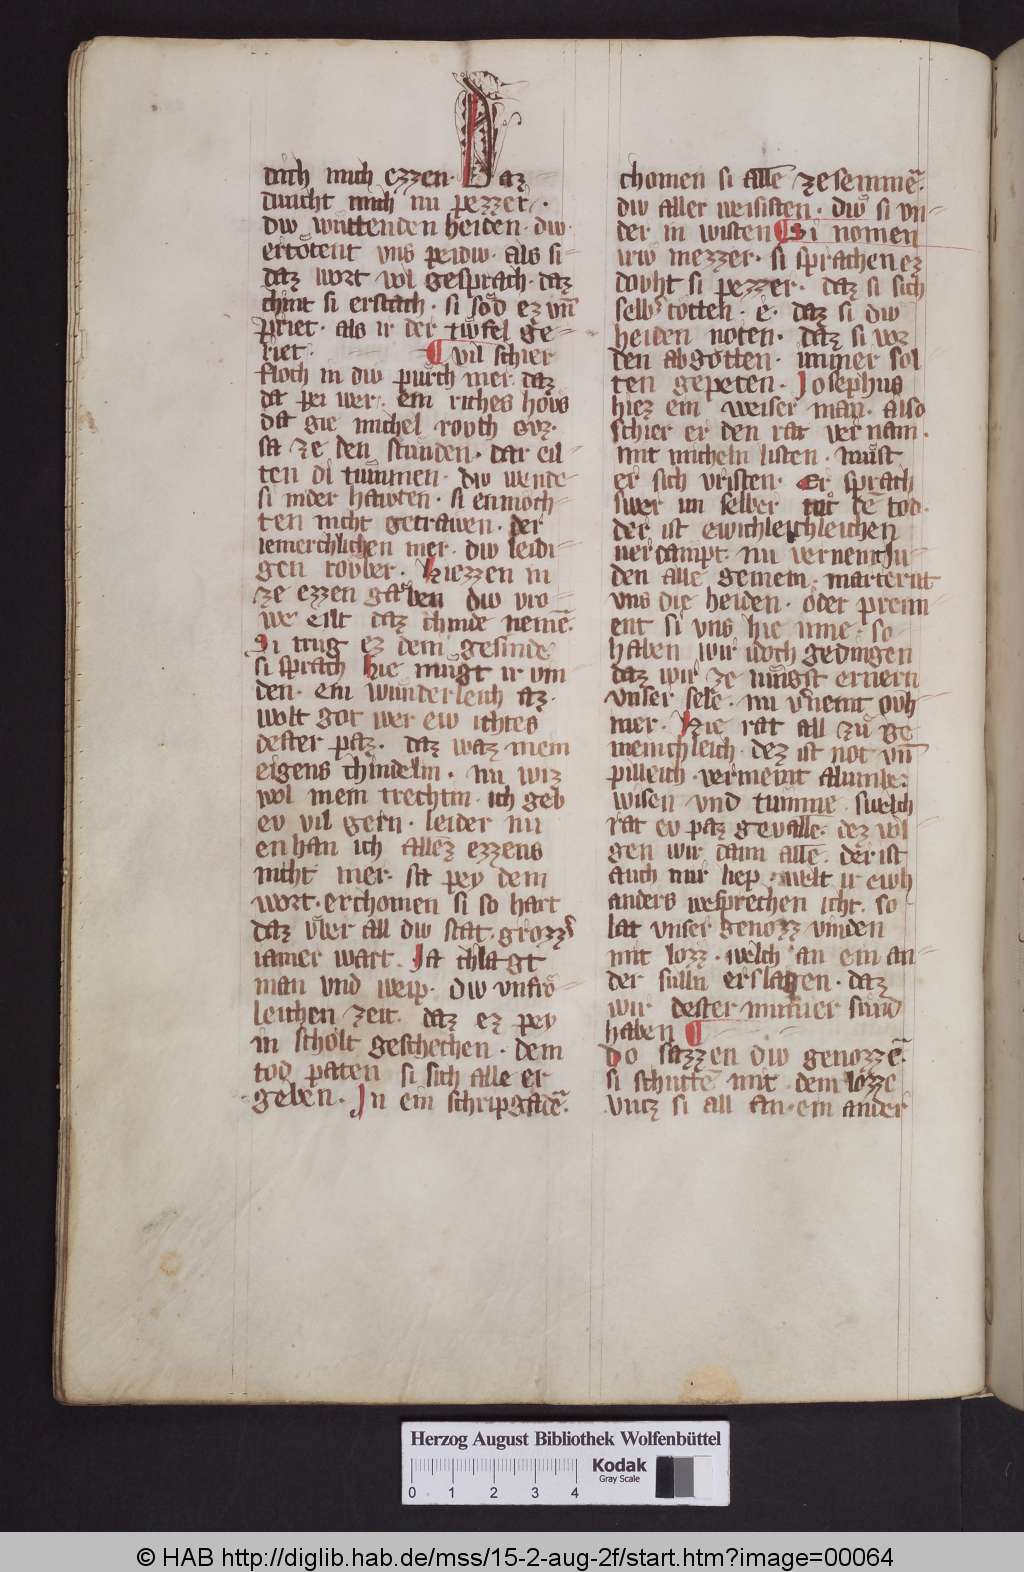 dich mich ezzen. Daz
duncht mich nu pezzer.
diw wuttenden heiden. diw
ertotent vns peidiw. als si
daz wort vol gesprach. daz
chint si erstach. si sod ez vn̄
priet. als ir der tiwfel ge
riet. vil schier
floch in diw purch mer daz
da pei wer. ein riches hovs
da gie michel rovch ovz.
sa ze den stunden. dar eil
ten di tummen. diw wende
si nider hawten. si enmoch
ten nicht getrawen. der
iemerchlichen mer. diw leidi
gen rovber. hiezzen in
ze ezzen gaben diw vro
we eilt daz chinde nemē.
Si trug ez dem gesinde
si sprach hie mugt ir vin
den. ein wunderleich az.
wolt got wer ew ichtes
dester paz. daz waz mein
eigens chindelin. nu wiz
wol mein trechtin. ich geb
ev vil gern. leider nu
enhan ich allez ezzens
nicht mer. sa pey dem
wort. erchomen si so hart
daz vber all diw stat. grozz
iamer wart. Ja chlagt
man vnd weip. diw vnfro
leichen zeit. daz ez pey
in scholt geschechen. dem
tod paten si sich alle er
geben. In ein schripgadē.
chomen si allē ze semmē.
diw aller weisisten. diw si vn
der in wisten Si nomen
irw mezzer. si sprachen ez
dovht si pezzer. daz si sich
selb totten. e. daz si diw
heiden noten. daz si vor
den abgotten. immer sol
ten gepeten. Josephus
hiez ein weiser man. also
schier er den rat vernam.
mit micheln listen. must
er sich vristen. Er sprach
swer im selber tut dē tod.
der ist ewichleichleichen
verdampt. nu vernemt Ju
den alle gemein. marternt
vns die heiden. oder prenn
ent si vns hie inne. so
haben wir idoch gedingen
daz wir ze iungst ernern
vnser sele. nu vnemt ovh
mer. Hie rat all zu ge
menichleich. dez ist not vn̄
pilleich. vernemt alumbe.
wisen vnd tumme swelch
rat ev paz gevalle. dez vol
gen wir dann alle. der ist
auch mir liep. welt ir ewh
anders wesprechen icht. so
lat vnser genozz vinden
mit lozz. welch an ein an
der sulln erslagen. daz
wir dester minner sund
haben
Do sazzen diw genozzē.
si schuttē mit dem lozze
vntz si all an. ein ander
Herzog August Bibliothek Wolfenbüttel
0 1 2 3 4
Kodak
Gray Scale
© HAB http://diglib.hab.de/mss/15-2-aug-2f/start.htm?image=00064